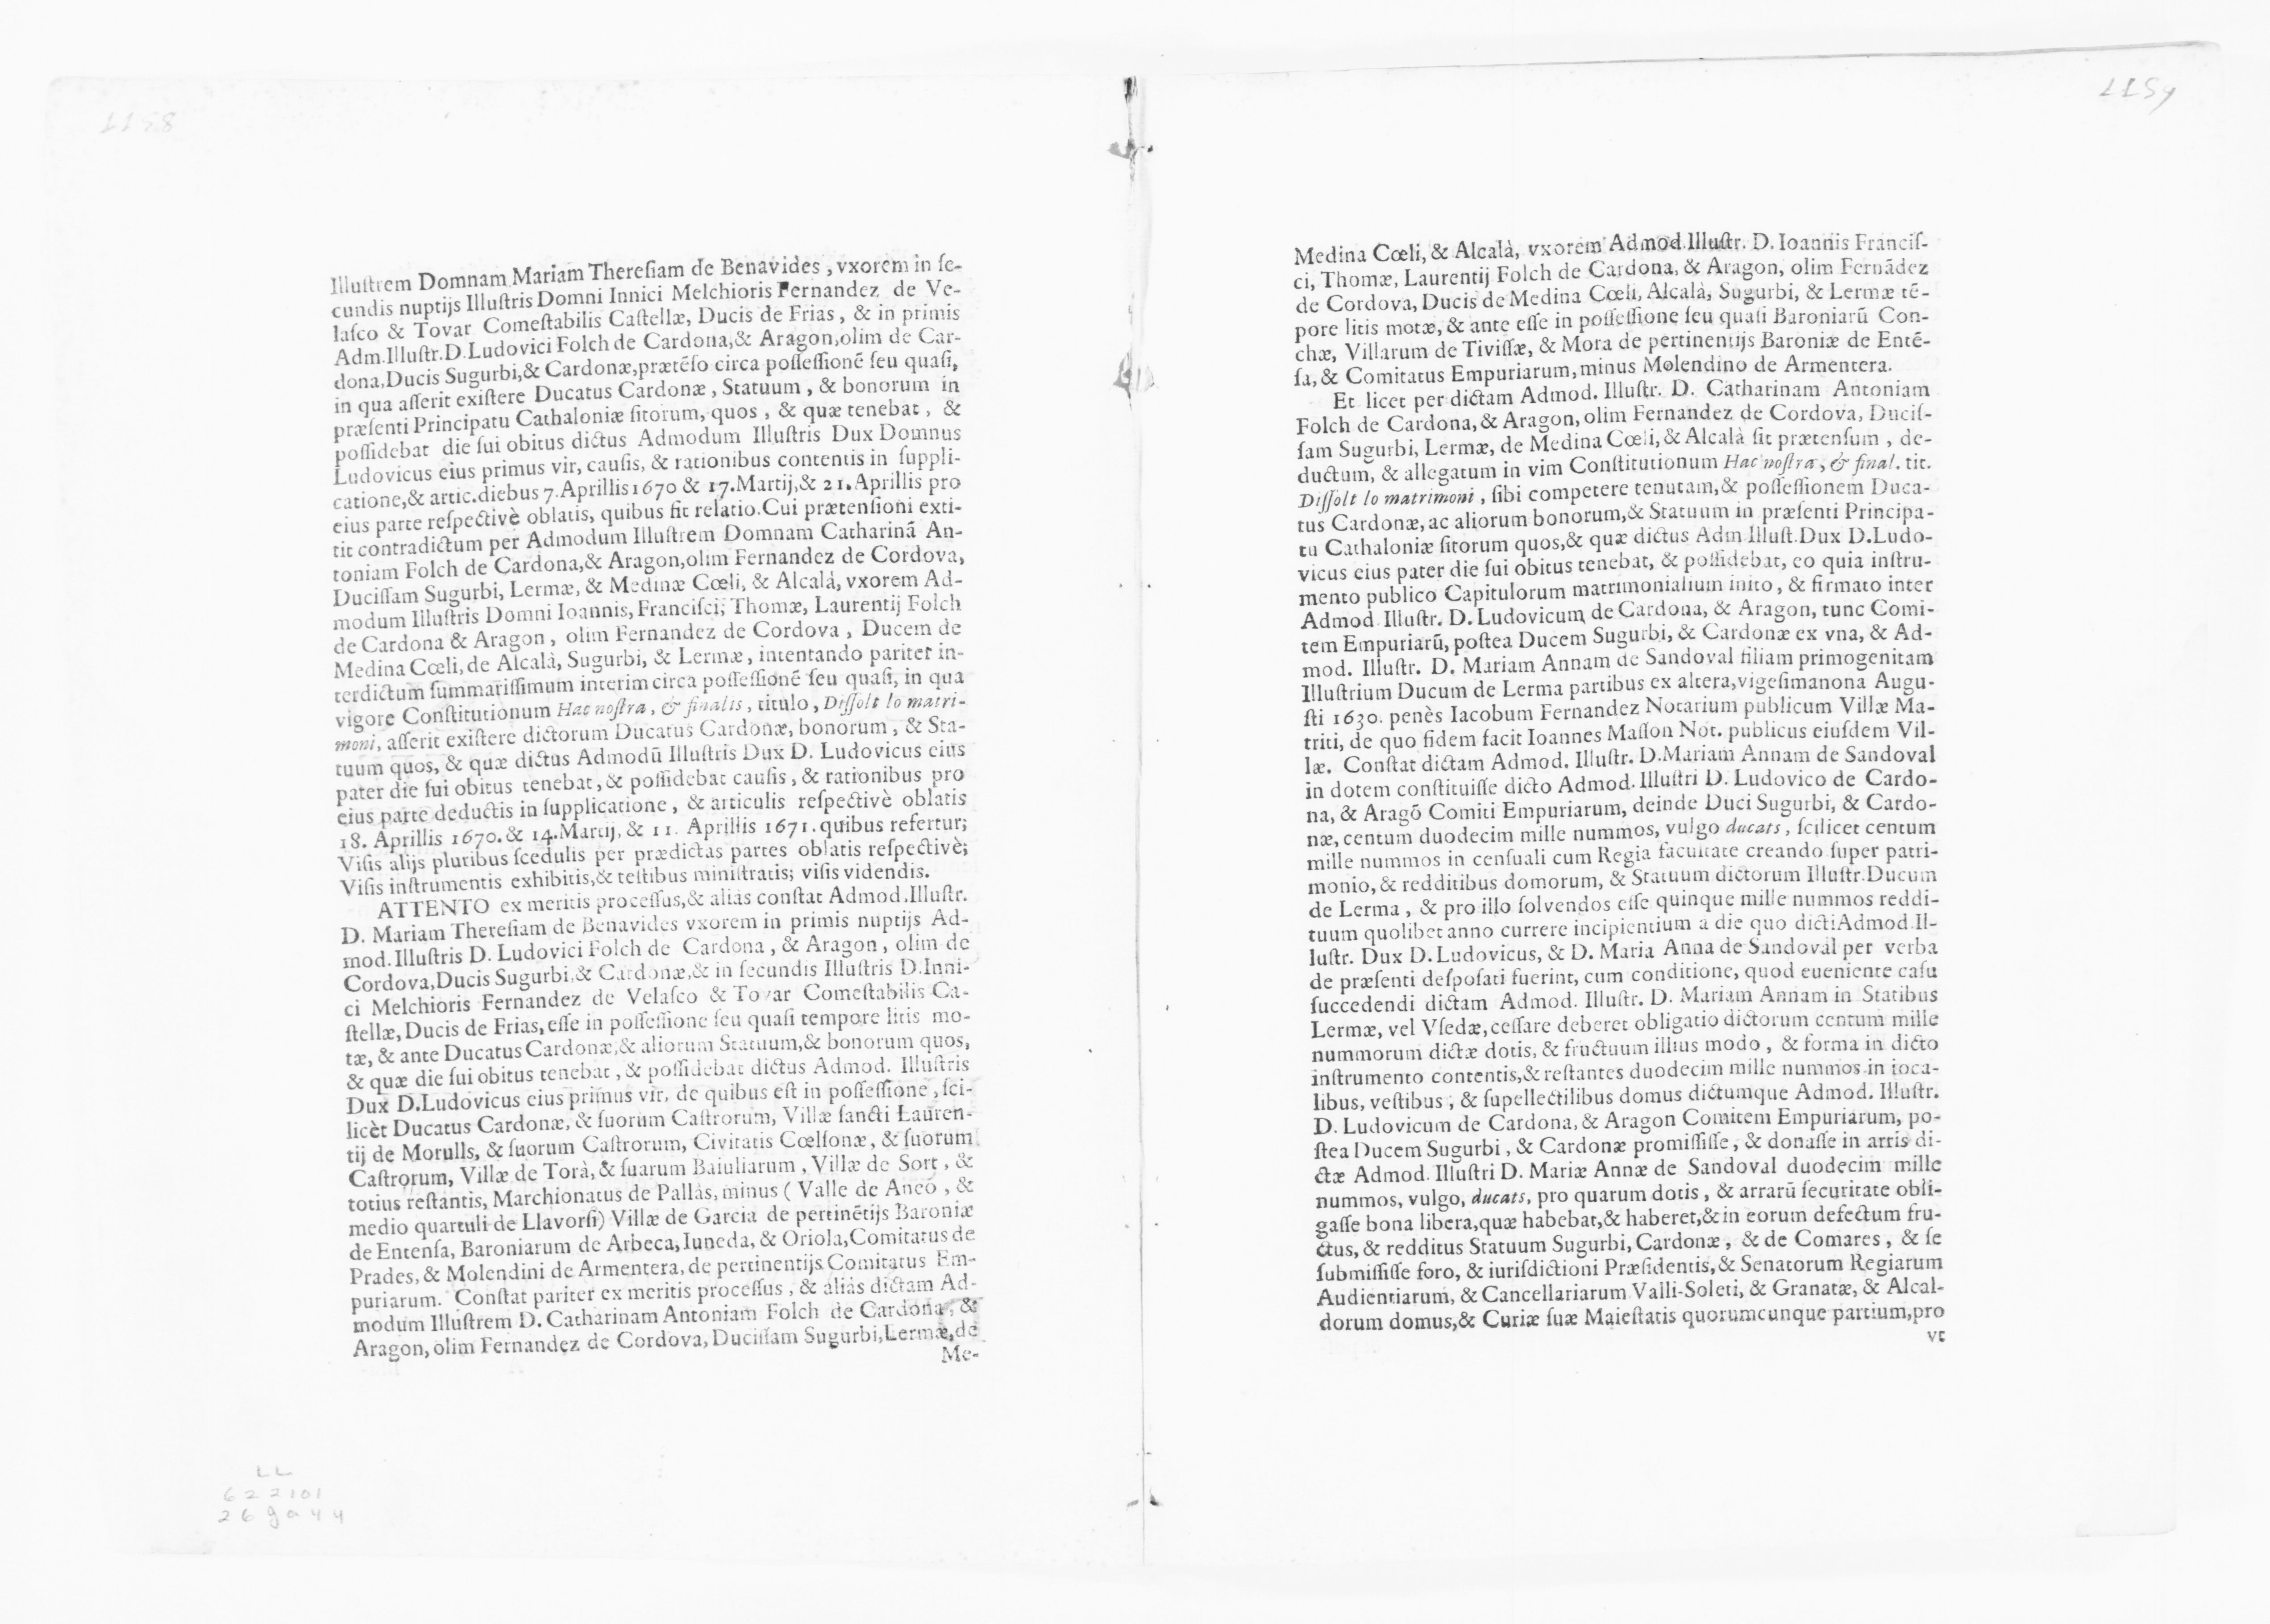 Illuſtrem Domnam Mariam Thereſiam de Benavides, vxorem in ſe-
cundis nuptijs Illuſtris Domni Innici Melchioris Fernandez de Ve-
laſco & Tovar Comeſtabilis Caſtellæ, Ducis de Frias, & in primis
Adm.Illuſtr.D.Ludovici Folch de Cardona,& Aragon,olim de Car-
dona,Ducis Sugurbi,& Cardonæ,prætēſo circa poſſeſſionē ſeu quaſi,
in qua aſſerit exiſtere Ducatus Cardonæ, Statuum, & bonorum in
præſenti Principatu Cathaloniæ ſitorum, quos, & quæ tenebat, &
poſſidebat die ſui obitus dictus Admodum Illuſtris Dux Domnus
Ludovicus eius primus vir, cauſis, & rationibus contentis in ſuppli-
catione,& artic.diebus 7.Aprillis 1670 & 17.Martij,& 21.Aprillis pro
eius parte reſpectivè oblatis, quibus fit relatio.Cui prætenſioni exti-
tit contradictum per Admodum Illuſtrem Domnam Catharinā An-
toniam Folch de Cardona,& Aragon,olim Fernandez de Cordova,
Duciſſam Sugurbi, Lermæ, & Medinæ Cœli, & Alcalà, vxorem Ad-
modum Illuſtris Domni Ioannis, Franciſci, Thomæ, Laurentij Folch
de Cardona & Aragon, olim Fernandez de Cordova, Ducem de
Medina Cœli, de Alcalà, Sugurbi, & Lermæ, intentando pariter in-
terdictum ſummariſſimum interim circa poſſeſſionē ſeu quaſi, in qua
vigore Conſtitutionum Hac noſtra, & finalis, titulo, Diſſolt lo matri-
moni, aſſerit exiſtere dictorum Ducatus Cardonæ, bonorum, & Sta-
tuum quos, & quæ dictus Admodū Illuſtris Dux D. Ludovicus eius
pater die ſui obitus tenebat, & poſſidebat cauſis, & rationibus pro
eius parte deductis in ſupplicatione, & articulis reſpectivè oblatis
18. Aprillis 1670.& 14.Martij, & 11. Aprillis 1671. quibus refertur;
Viſis alijs pluribus ſcedulis per prædictas partes oblatis reſpectivè;
Viſis inſtrumentis exhibitis,& teſtibus miniſtratis; viſis videndis.
ATTENTO ex meritis proceſſus,& aliàs conſtat Admod.Illuſtr.
D. Mariam Thereſiam de Benavides vxorem in primis nuptijs Ad-
mod. Illuſtris D. Ludovici Folch de Cardona, & Aragon, olim de
Cordova,Ducis Sugurbi,& Cardonæ,& in ſecundis Illuſtris D.Inni-
ci Melchioris Fernandez de Velaſco & Tovar Comeſtabilis Ca-
ſtellæ, Ducis de Frias, eſſe in poſſeſſione ſeu quaſi tempore litis mo-
tæ, & ante Ducatus Cardonæ,& aliorum Statuum,& bonorum quos,
& quæ die ſui obitus tenebat, & poſſidebat dictus Admod. Illuſtris
Dux D.Ludovicus eius primus vir, de quibus eſt in poſſeſſione, ſci-
licèt Ducatus Cardonæ, & ſuorum Caſtrorum, Villæ ſancti Lauren-
tij de Morulls, & ſuorum Caſtrorum, Civitatis Cœlſonæ, & ſuorum
Caſtrorum, Villæ de Torà, & ſuarum Baiuliarum, Villæ de Sort, &
totius reſtantis, Marchionatus de Pallàs, minus ( Valle de Aneo, &
medio quartuli de Llavorſi) Villæ de Garcia de pertinētijs Baroniæ
de Entenſa, Baroniarum de Arbeca, Iuneda, & Oriola,Comitatus de
Prades, & Molendini de Armentera, de pertinentijs Comitatus Em-
puriarum. Conſtat pariter ex meritis proceſſus, & aliàs dictam Ad-
modum Illuſtrem D. Catharinam Antoniam Folch de Cardona, &
Aragon, olim Fernandez de Cordova, Duciſſam Sugurbi, Lermæ, de
Me-
LL
622101
26ga44
LL59
Medina Cœli, & Alcalà, vxorem Admod.Illuſtr. D. Ioannis Franciſ-
ci, Thomæ, Laurentij Folch de Cardona, & Aragon, olim Fernādez
de Cordova, Ducis de Medina Cœli, Alcalà, Sugurbi, & Lermæ tē-
pore litis motæ, & ante eſſe in poſſeſſione ſeu quaſi Baroniarū Con-
chæ, Villarum de Tiviſſæ, & Mora de pertinentijs Baroniæ de Entē-
ſa, & Comitatus Empuriarum, minus Molendino de Armentera.
Et licet per dictam Admod. Illuſtr. D. Catharinam Antoniam
Folch de Cardona, & Aragon, olim Fernandez de Cordova, Duciſ-
ſam Sugurbi, Lermæ, de Medina Cœli, & Alcalà ſit prætenſum, de-
ductum, & allegatum in vim Conſtitutionum Hac noſtra, & final. tit.
Diſſolt lo matrimoni, ſibi competere tenutam,& poſſeſſionem Duca-
tus Cardonæ, ac aliorum bonorum,& Statuum in præſenti Principa-
tu Cathaloniæ ſitorum quos,& quæ dictus Adm.Illuſt.Dux D.Ludo-
vicus eius pater die ſui obitus tenebat, & poſſidebat, eo quia inſtru-
mento publico Capitulorum matrimonialium inito, & firmato inter
Admod. Illuſtr. D. Ludovicum de Cardona, & Aragon, tunc Comi-
tem Empuriarū, poſtea Ducem Sugurbi, & Cardonæ ex vna, & Ad-
mod. Illuſtr. D. Mariam Annam de Sandoval filiam primogenitam
Illuſtrium Ducum de Lerma partibus ex altera,vigeſimanona Augu-
ſti 1630. penès Iacobum Fernandez Notarium publicum Villæ Ma-
triti, de quo fidem facit Ioannes Maſſon Not. publicus eiuſdem Vil-
læ. Conſtat dictam Admod. Illuſtr. D.Mariam Annam de Sandoval
in dotem conſtituiſſe dicto Admod. Illuſtri D. Ludovico de Cardo-
na, & Aragō Comiti Empuriarum, deinde Duci Sugurbi, & Cardo-
næ, centum duodecim mille nummos, vulgo ducats, ſcilicet centum
mille nummos in cenſuali cum Regia facultate creando ſuper patri-
monio, & redditibus domorum, & Statuum dictorum Illuſtr.Ducum
de Lerma, & pro illo ſolvendos eſſe quinque mille nummos reddi-
tuum quolibet anno currere incipientium a die quo dicti Admod.Il-
luſtr. Dux D. Ludovicus, & D. Maria Anna de Sandoval per verba
de præſenti deſpoſati fuerint, cum conditione, quod eueniente caſu
ſuccedendi dictam Admod. Illuſtr. D. Mariam Annam in Statibus
Lermæ, vel Vſedæ, ceſſare deberet obligatio dictorum centum mille
nummorum dictæ dotis, & fructuum illius modo, & forma in dicto
inſtrumento contentis,& reſtantes duodecim mille nummos in ioca-
libus, veſtibus, & ſupellectilibus domus dictumque Admod. Illuſtr.
D. Ludovicum de Cardona, & Aragon Comitem Empuriarum, po-
ſtea Ducem Sugurbi, & Cardonæ promiſiſſe, & donaſſe in arris di-
ctæ Admod. Illuſtri D. Mariæ Annæ de Sandoval duodecim mille
nummos, vulgo, ducats, pro quarum dotis, & arrarū ſecuritate obli-
gaſſe bona libera,quæ habebat,& haberet,& in eorum defectum fru-
ctus, & redditus Statuum Sugurbi, Cardonæ, & de Comares, & ſe
ſubmiſiſſe foro, & iuriſdictioni Præſidentis,& Senatorum Regiarum
Audientiarum, & Cancellariarum Valli-Soleti, & Granatæ, & Alcal-
dorum domus,& Curiæ ſuæ Maieſtatis quorumcunque partium,pro
vt